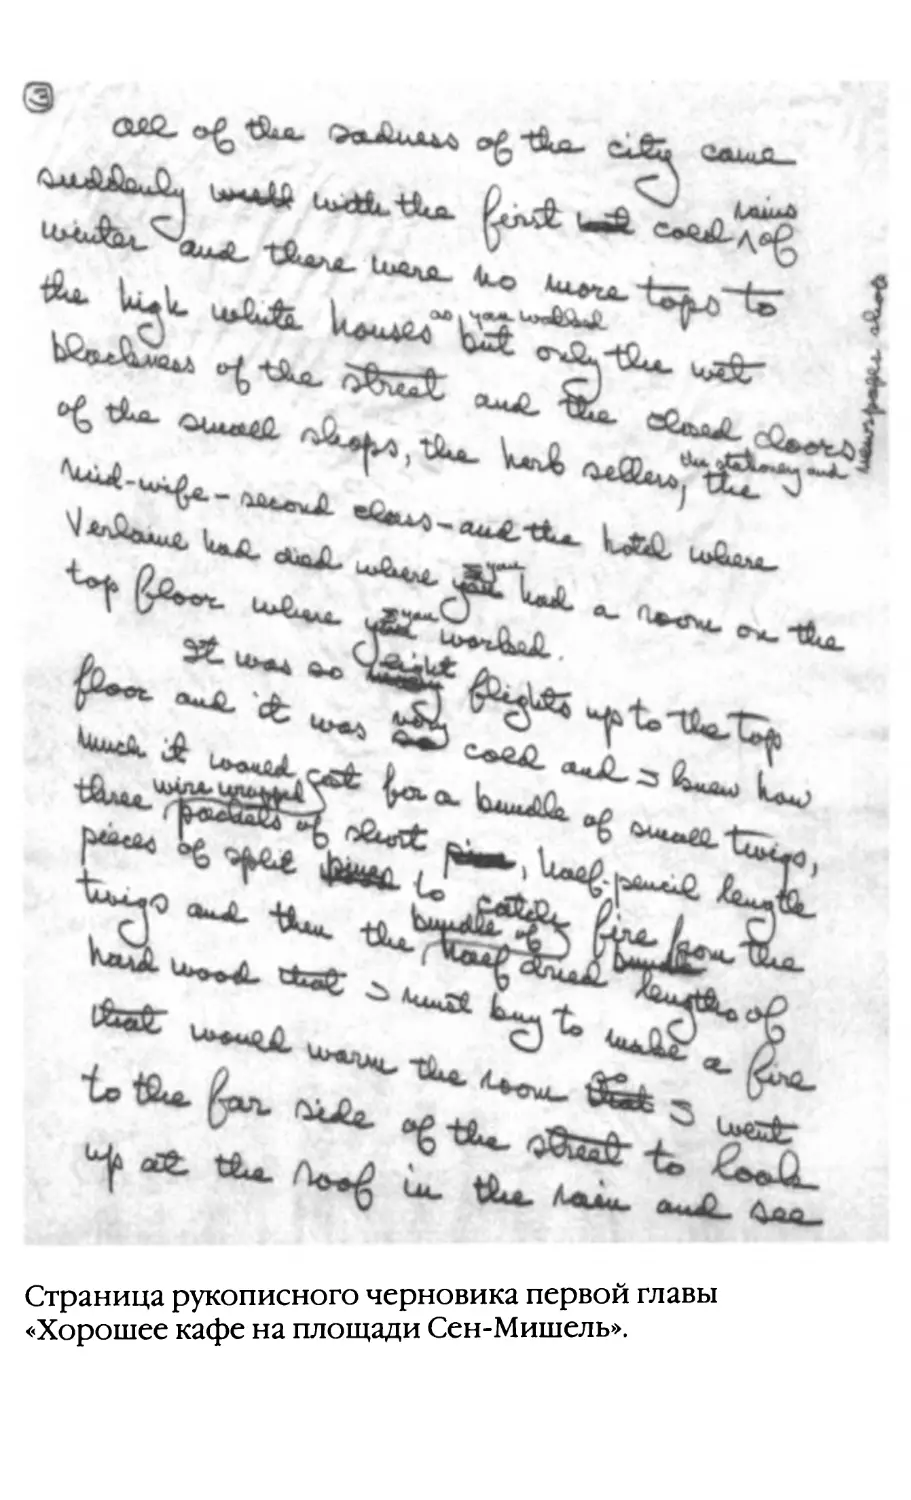 3
All of the sadness of the city came
suddenly with the first cold rains of
winter and there were no more tops to
the high white houses as you walked but only the wet
blackness of the street and the closed doors
of the small shops, the herb sellers, the stationery and newspaper shop the
mid-wife-second class-and the hotel where
Verlaine had died where you had a room on the
top floor where you worked.
It was so eight flights up to the top
floor and it was very cold and I knew how
much it would cost for a bundle of small twigs,
three wire wrapped packets of short, half-pencil length
pieces of split to catch fire from the
twigs and then the bundle of half dried lengths of
hard wood that I must buy to make a fire
that would warm the room so I went
to the far side of the street to look
up at the roof in the rain and see
Страница рукописного черновика первой главы
«Хорошее кафе на площади Сен-Мишель».